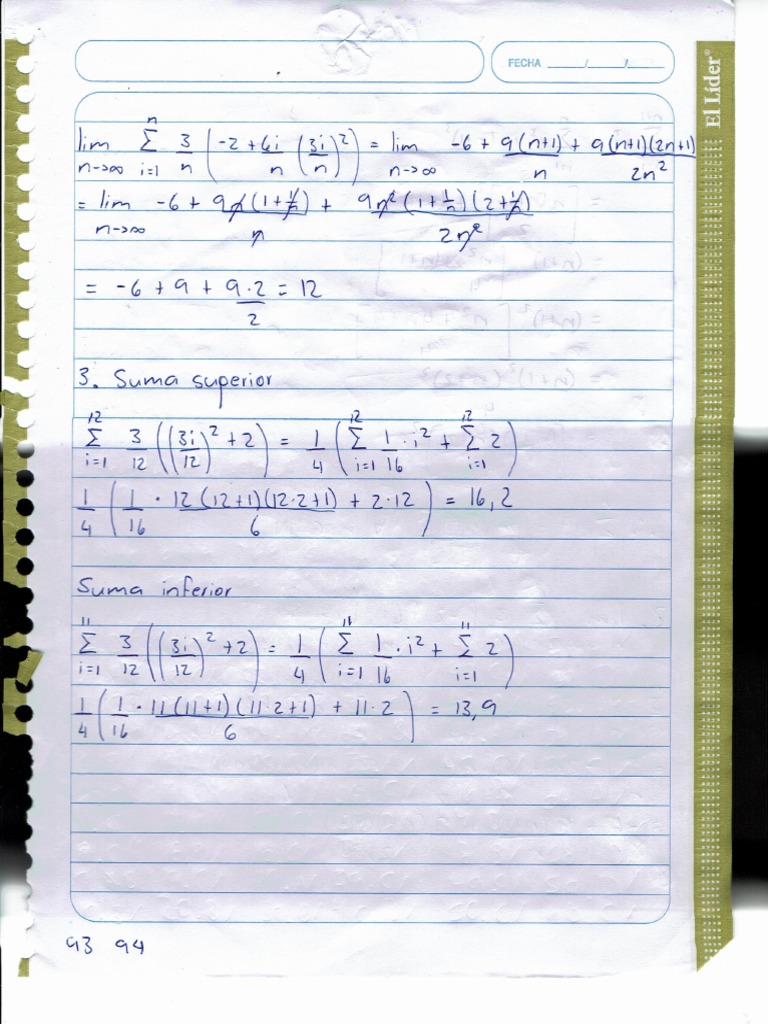 FECHA ____/____/____
El Líder®
lim n→∞ Σ i=1 n 3/n (-2 + 6i/n (3i/n)²) = lim n→∞ -6 + 9(n+1)/n + 9(n+1)(2n+1)/2n²
= lim n→∞ -6 + 9n(1+1/n)/n + 9n²(1+1/n)(2+1/n)/2n²
= -6 + 9 + 9·2/2 = 12
3. Suma superior
Σ i=1 12 3/12 ((3i/12)² + 2) = 1/4 (Σ i=1 12 1/16 · i² + Σ i=1 12 2)
1/4 (1/16 · 12(12+1)(12·2+1)/6 + 2·12) = 16,2
Suma inferior
Σ i=1 11 3/12 ((3i/12)² + 2) = 1/4 (Σ i=1 11 1/16 · i² + Σ i=1 11 2)
1/4 (1/16 · 11(11+1)(11·2+1)/6 + 11·2) = 13,9
93 94